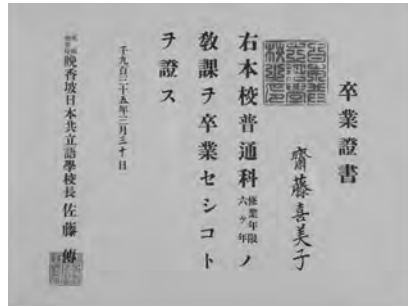 卒業證書
齋藤喜美子
右本校普通科修業年限六ヶ年ノ
敎課ヲ卒業セシコト
ヲ證ス
千九百二十五年三月三十日
晩香坡日本共立語學校長 佐藤傳